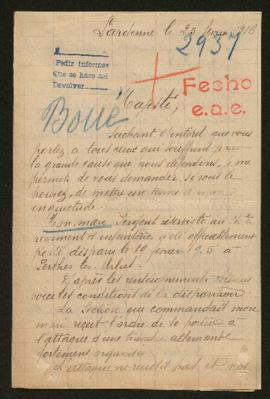 Lardenne le 23 1916
2937
Pedir informes
que se haga así
Devolver
Fecho
e.a.e.
Majesté,
Boué
Sachant l'intérêt que vous
portez à tous ceux qui souffrent pour
la grande cause que nous défendons, je me
permets de vous demander, si vous le
pouvez, de mettre un terme à mon
inquiétude.
Mon mari, sergent réserviste au
régiment d'infanterie a été officiellement
porté disparu le 19 février 1915 à
Perthes les Hurlus.
D'après les renseignements
voici les conditions de la disparition.
La section que commandait mon
mari reçut l'ordre de se porter à
l'attaque d'une tranchée allemande
fortement organisée.
L'attaque ne réussit pas et